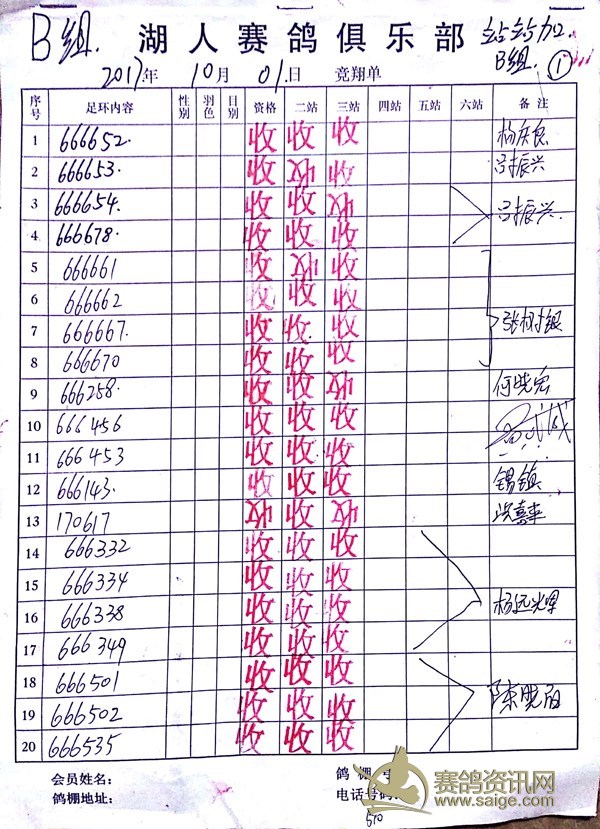 B组. 湖人赛鸽俱乐部 站站加
B组. ①
2017年 10月 01日 竞翔单
序号 足环内容 性别 羽色 日别 资格 二站 三站 四站 五站 六站 备注
1 666652. 收 收 收 杨庆良
2 666653. 收 收 收 吕振兴
3 666654. 收 收 收 吕振兴.
4 666678. 收 收 收
5 666661 收 收 收
6 666662 收 收 收
7 666667. 收 收 收 张树银
8 666670 收 收 收
9 666258. 收 收 收 何晓宽
10 666456 收 收 收
11 666453 收 收 收
12 666143. 收 收 收 锡镇
13 170617 收 收 收
14 666332 收 收 收
15 666334 收 收 收
16 666338 收 收 收 杨远火军
17 666349 收 收 收
18 666501 收 收 收 陈晓丽
19 666502 收 收 收
20 666535 收 收 收
会员姓名: 鸽棚
鸽棚地址: 电话号码:
510
赛鸽资讯网
www.saige.com